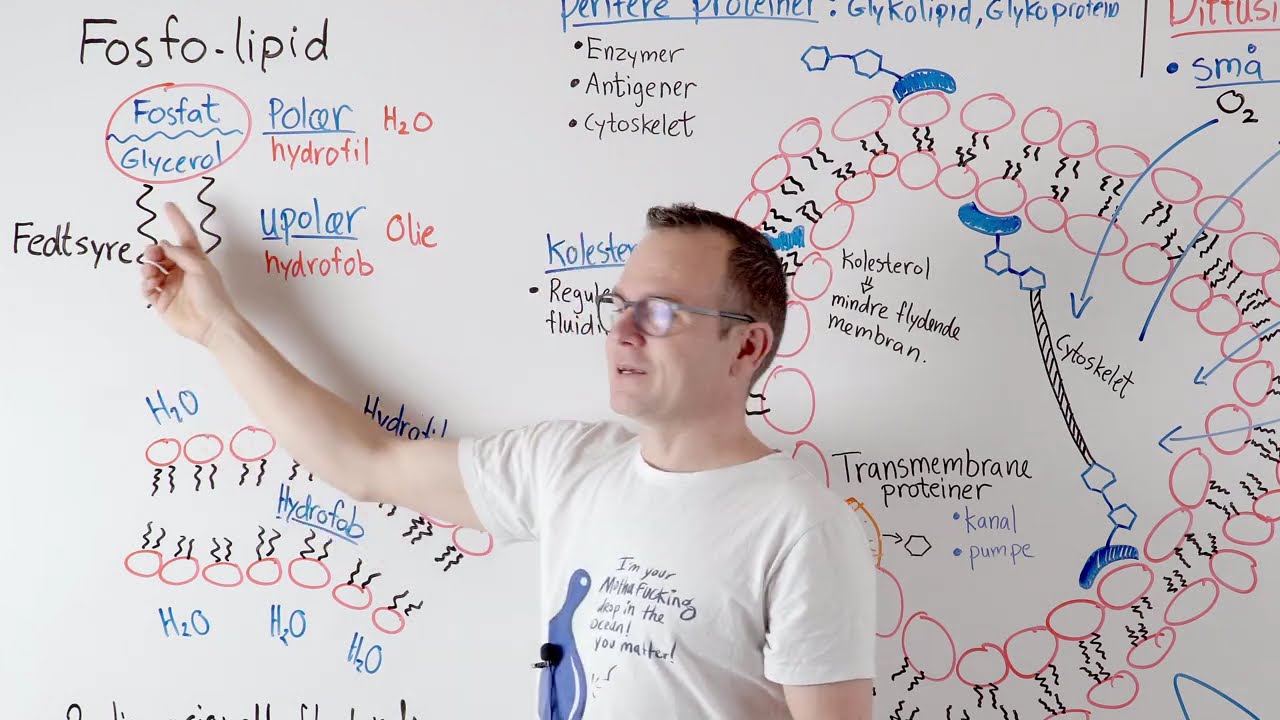 Fosfo-lipid
Fosfat
Glycerol
Polær H₂O
hydrofil
Fedtsyre
upolær Olie
hydrofob
H₂O
Hydrofil
Hydrofob
H₂O H₂O
H₂O
perifere proteiner : Glykolipid, Glykoprotein
• Enzymer
• Antigener
• Cytoskelet
Kolester
• Regule
fluidi
Kolesterol
⇓
mindre flydende
membran.
Cytoskelet
Transmembrane
proteiner
• kanal
• pumpe
Diffusi
• små
O₂
I'm your
MothaFucking
drop in the
ocean!
you matter!